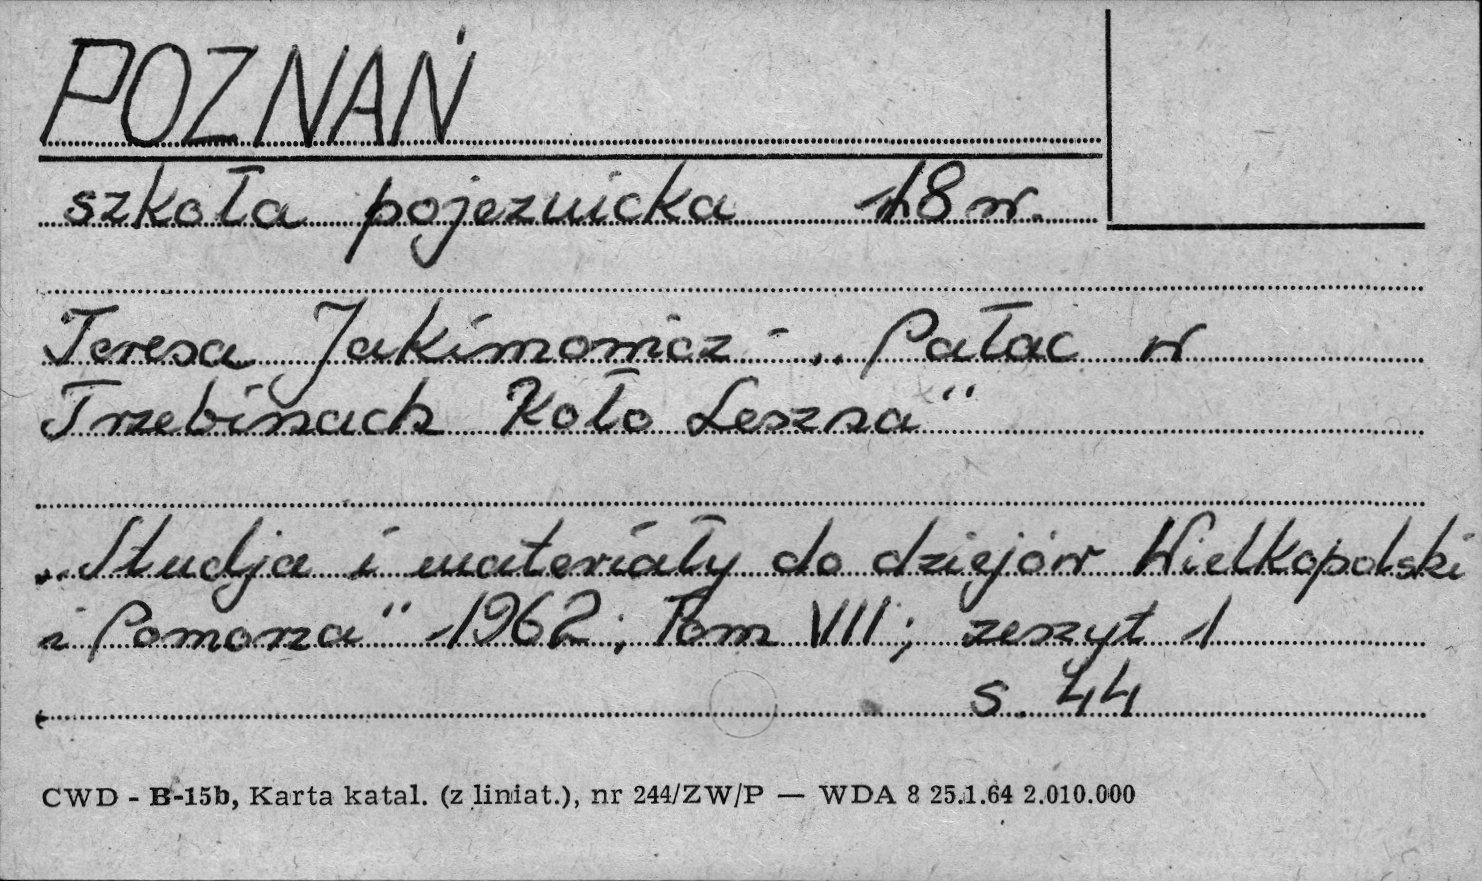 POZNAŃ
szkoła pojezuicka 18 w.
Teresa Jakimowicz - „Pałac w
Trzebinach Koło Leszna"
„Studja i materiały do dziejów Wielkopolski
i Pomorza" 1962; Tom VII; zeszyt 1
s. 44
CWD - B-15b, Karta katal. (z liniat.), nr 244/ZW/P — WDA 8 25.1.64 2.010.000